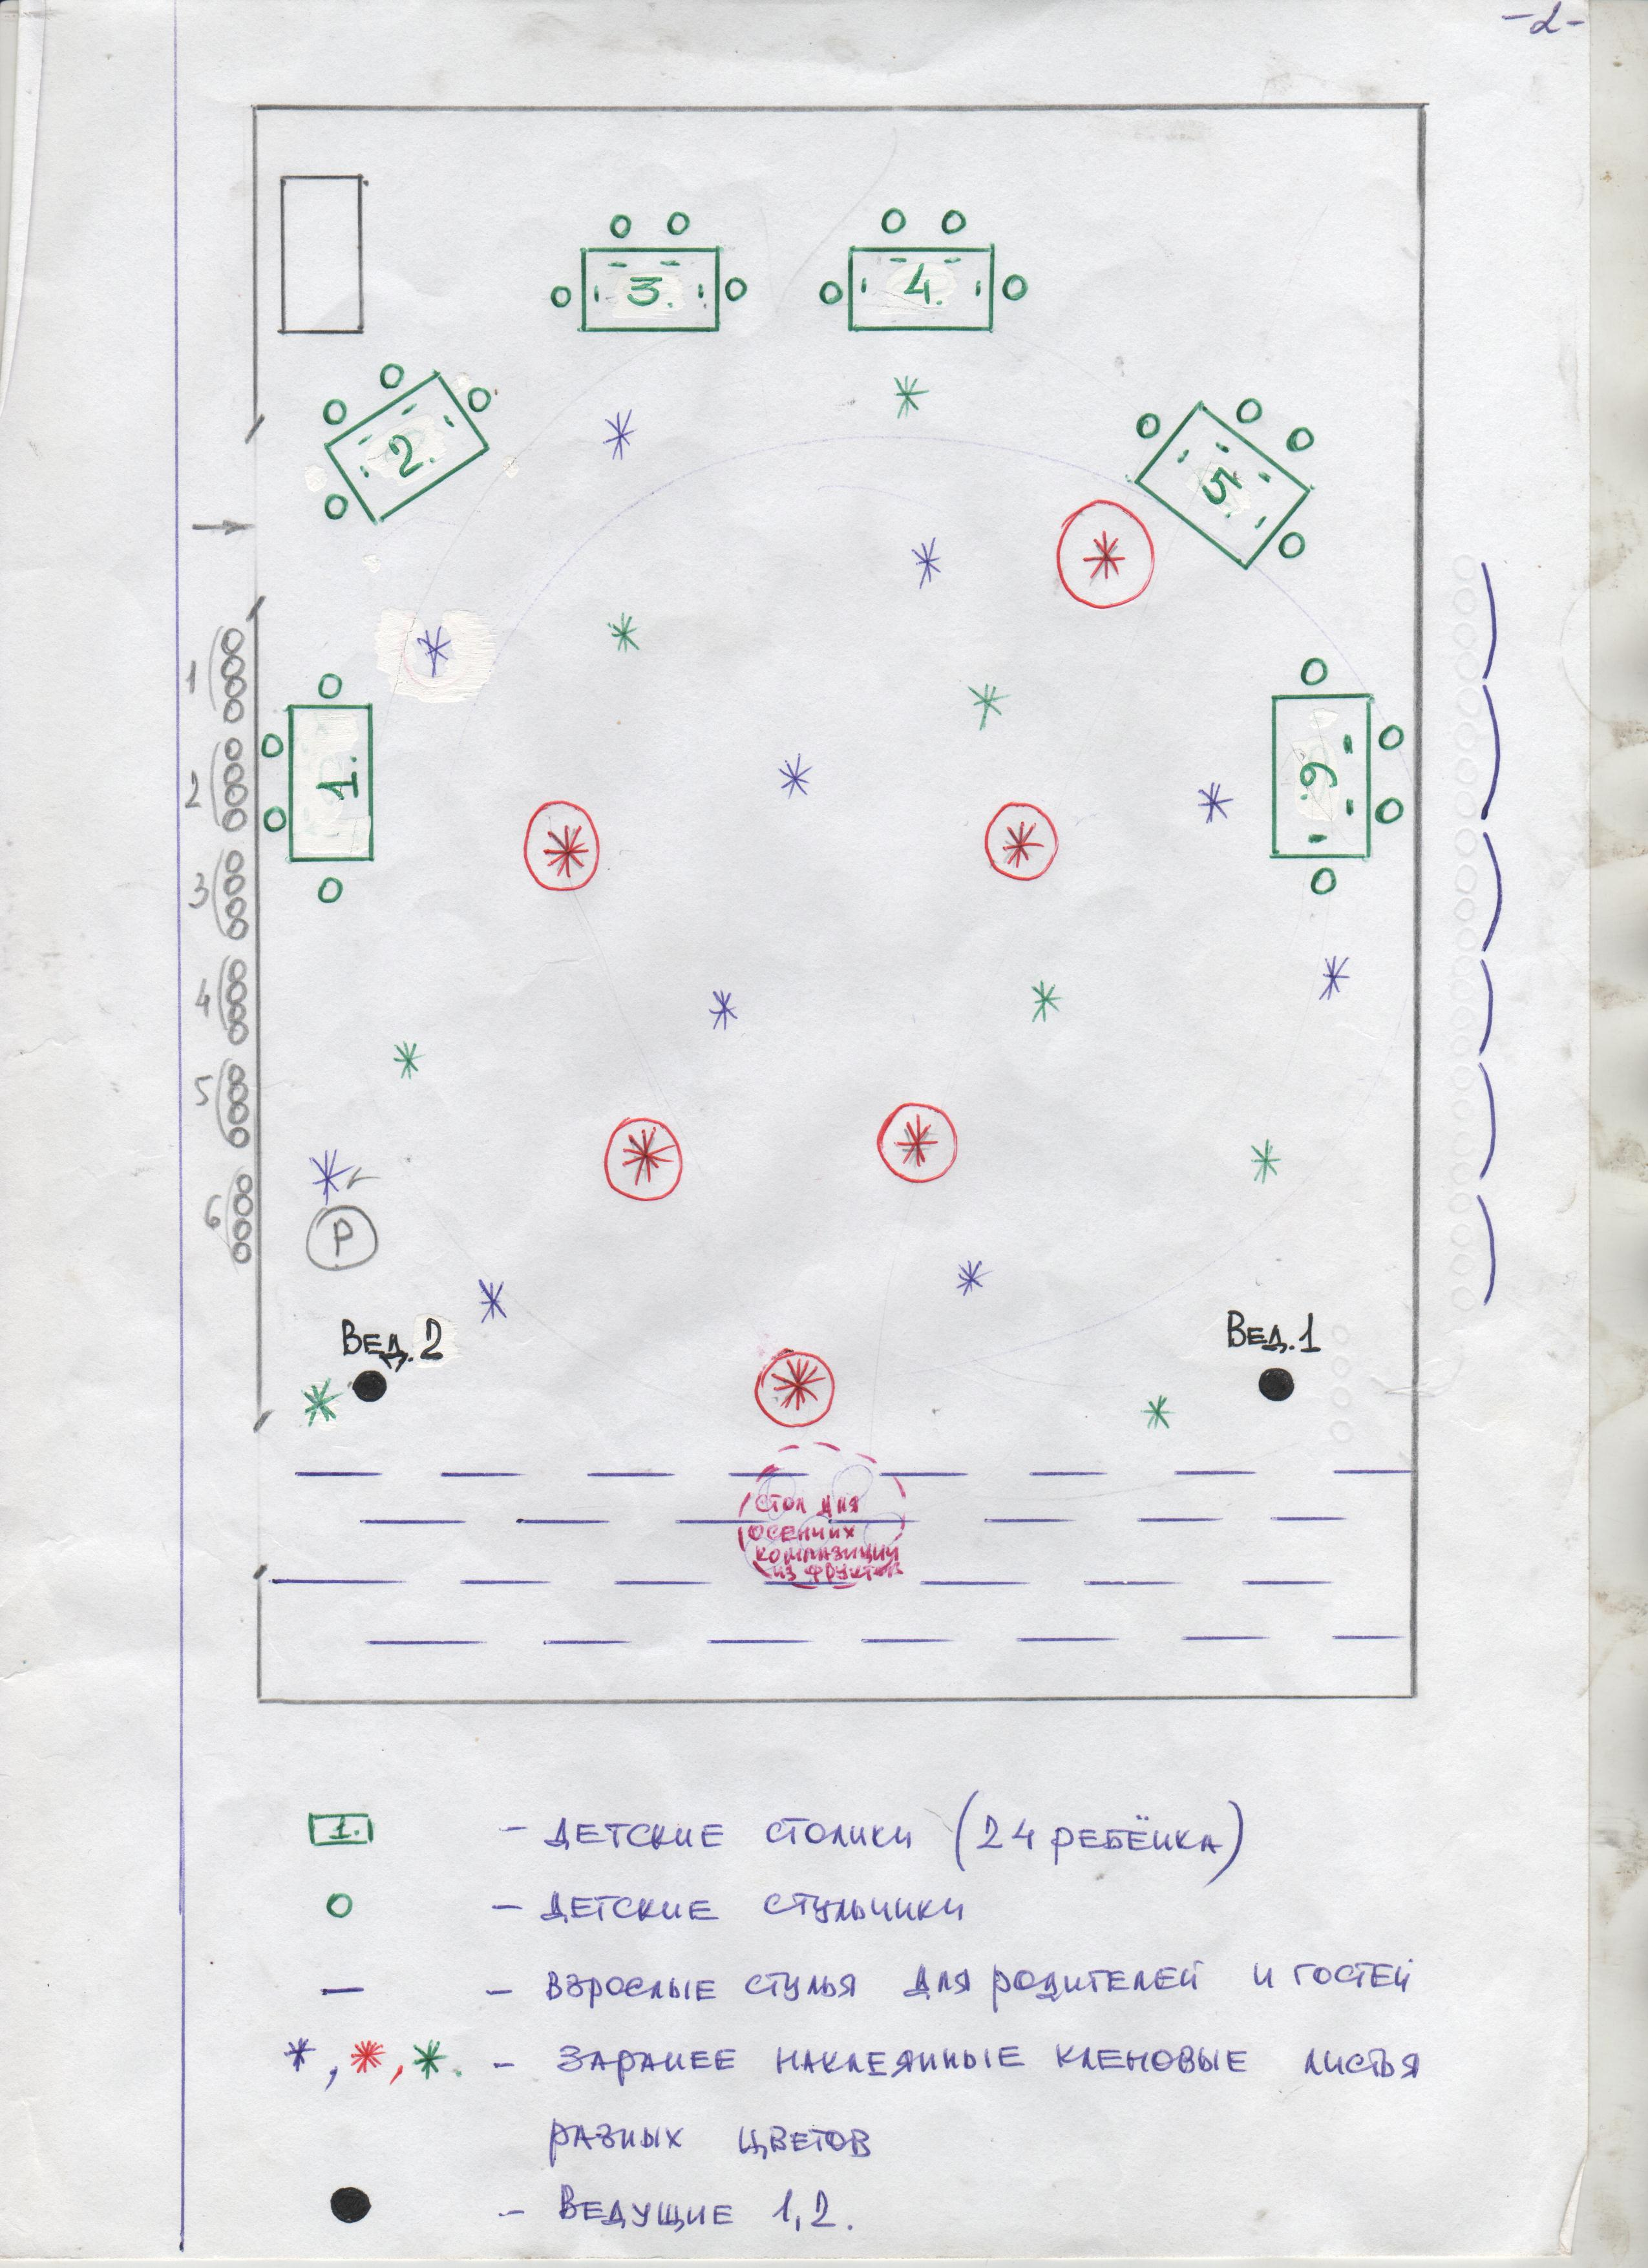 -2-
3.
4.
2.
5.
1
1.
6.
2
3
4
5
6
Р
Вед.2
Вед.1
стол для
осенних
композиций
из фруктов
1. - детские столики (24 ребёнка)
- детские стульчики
- взрослые стулья для родителей и гостей
- заранее наклеянные кленовые листья
разных цветов
- Ведущие 1,2.